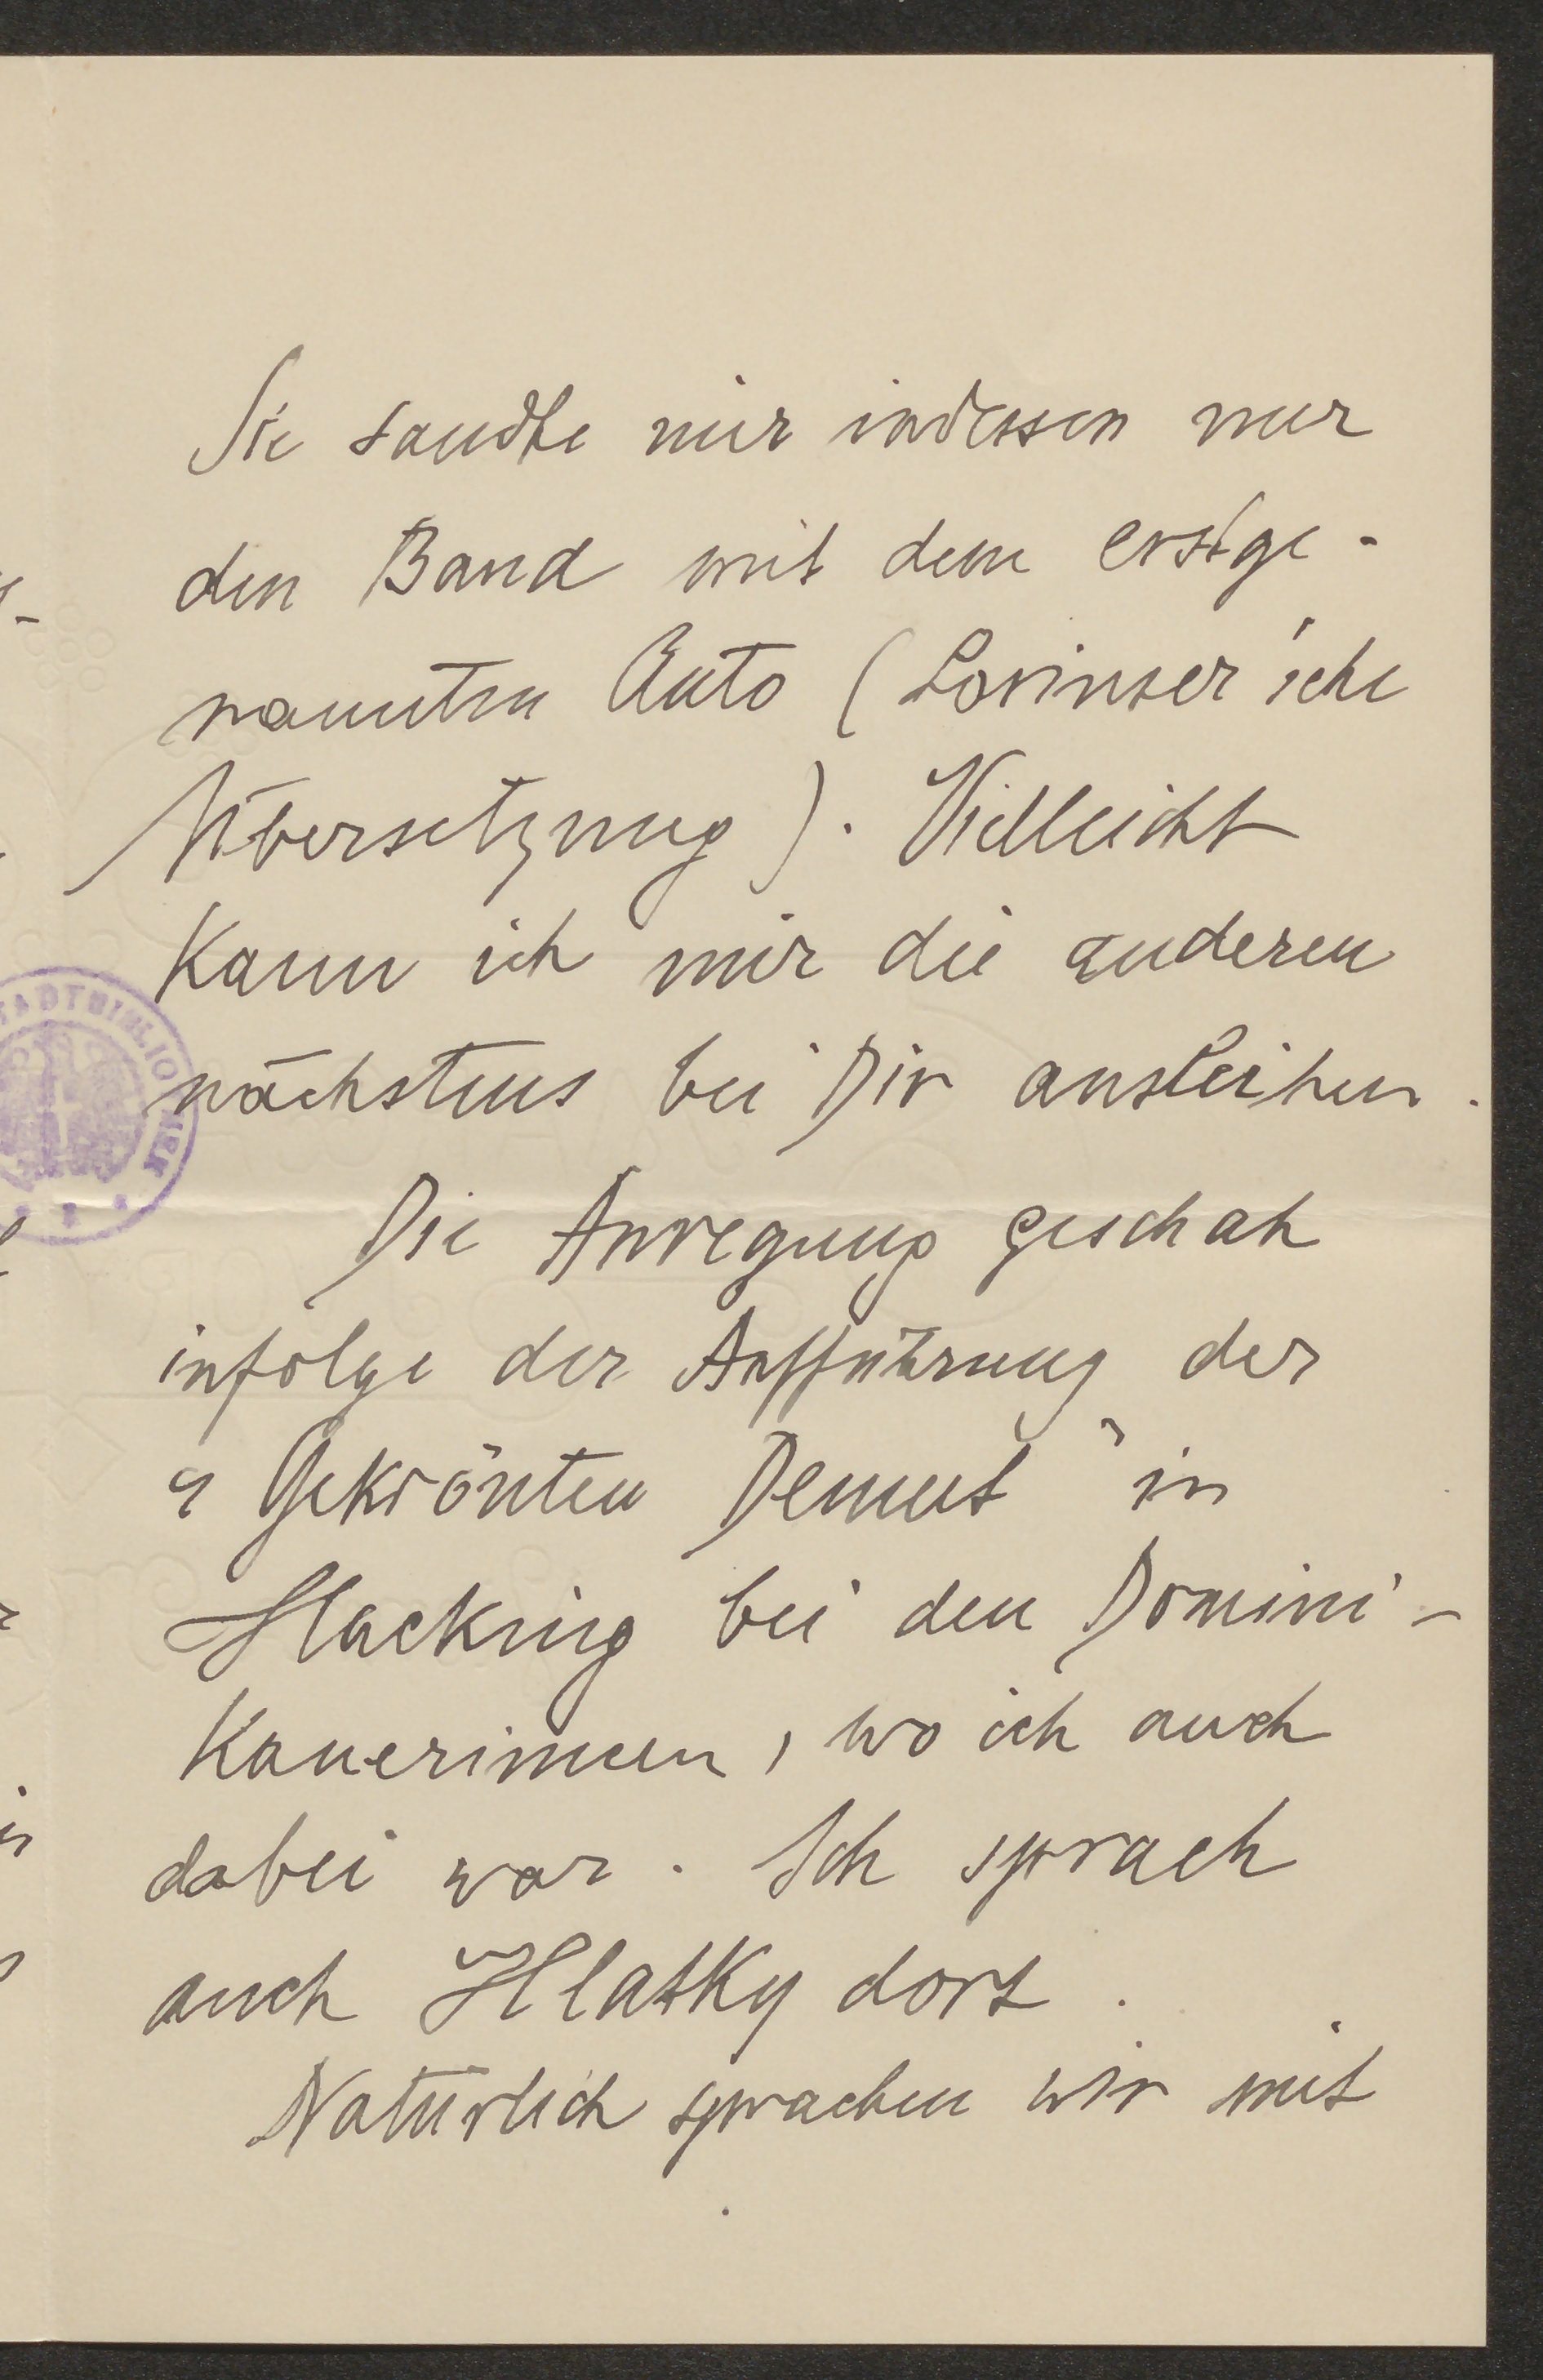 Sie sandte mir indessen nur
den Band mit dem erstge-
nannten Auto (Lorinser'sche
Übersetzung). Vielleicht
kann ich mir die anderen
nächstens bei Dir ausleihen.
Die Anregung geschah
infolge der Aufführung der
"Gekrönten Demut" in
Hacking bei den Domini-
kanerinnen, wo ich auch
dabei war. Ich sprach
auch Hlatky dort.
Natürlich sprachen wir mit
STADTBIBLIOTHEK